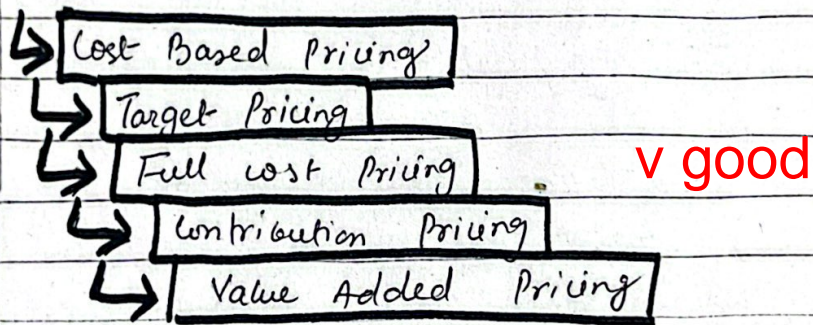 Cost Based Pricing
Target Pricing
Full cost Pricing
v good
Contribution Pricing
Value Added Pricing